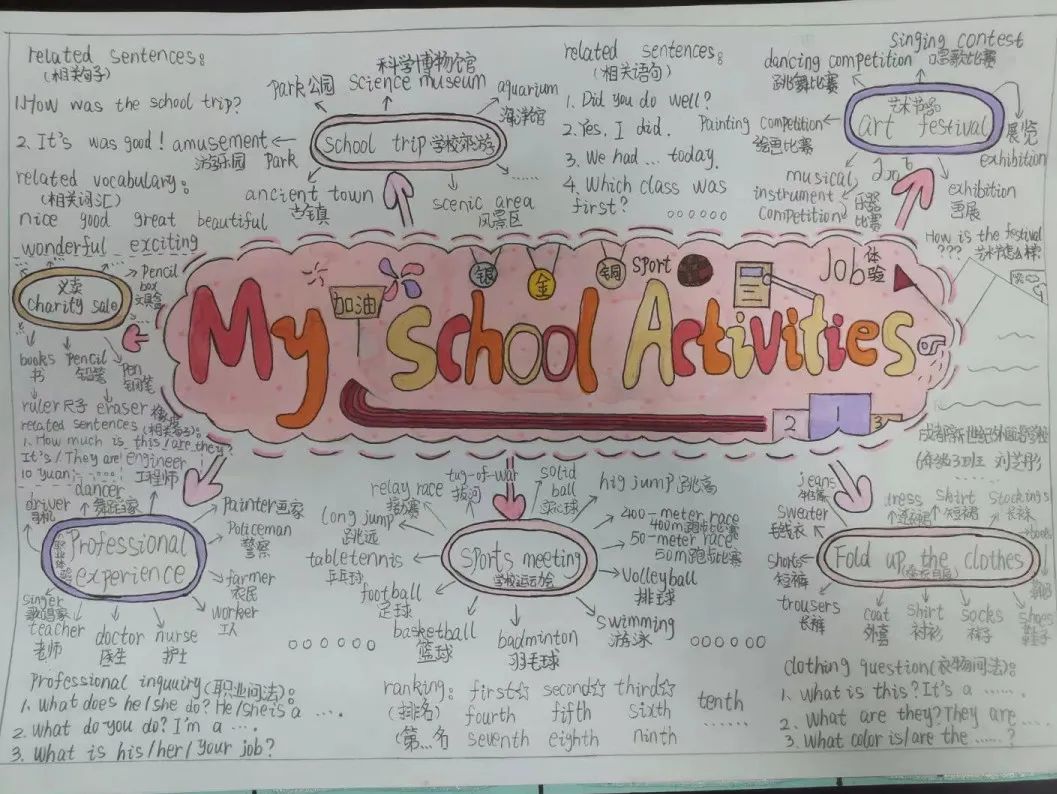 related sentences:
(相关句子)
1.How was the school trip?
2. It's was good!
related vocabulary:
(相关词汇)
nice good great beautiful
wonderful exciting
科学博物馆
Park 公园
science museum
aquarium
海洋馆
school trip 学校郊游
amusement
游乐园 park
ancient town
古镇
scenic area
风景区
......
related sentences:
(相关语句)
1. Did you do well?
2. Yes, I did.
3. We had ... today.
4. Which class was
first?
singing contest
唱歌比赛
dancing competition
跳舞比赛
Painting competition
绘画比赛
艺术节
art festival
展览
exhibition
musical
instrument
competition
乐器
比赛
exhibition
画展
How is the festival
???
义卖
charity sale
Pencil
box
文具盒
books
书
pencil
铅笔
Pen
钢笔
ruler 尺子 eraser 橡皮
related sentences (相关句子):
1. How much is this/are they?
It's/They are
10 yuan.
银
金
铜
sport
Job 体验
加油
My school Activities
2 1 3
6年级3班
engineer
工程师
dancer
舞蹈家
driver
司机
Painter 画家
Policeman
警察
farmer
农民
worker
工人
Professional
experience
职业体验
singer
歌唱家
teacher
老师
doctor
医生
nurse
护士
Professional inquuiry (职业问法):
1. what does he/she do? He/she is a ....
2. what do you do? I'm a ....
3. What is his/her/your job?
tug-of-war
拔河
relay race
接力赛
long jump
跳远
table tennis
乒乓球
football
足球
basketball
篮球
badminton
羽毛球
swimming
游泳
Volleyball
排球
50-meter race
50m跑步比赛
400-meter race
400m跑步比赛
hig jump 跳高
solid
ball
实心球
sports meeting
学校运动会
ranking: first☆ second☆ third☆
(排名) fourth fifth sixth
(第...名 seventh eighth ninth
tenth
......
jeans
牛仔裤
sweater
毛线衣
shorts
短裤
trousers
长裤
连衣裙
Skirt
短裙
Stockings
长袜
Fold up the clothes
coat
外套
shirt
衬衫
socks
袜子
shoes
鞋子
clothing question (衣物问法):
1. what is this? It's a ......
2. What are they? They are ....
3. What color is/are the ......?